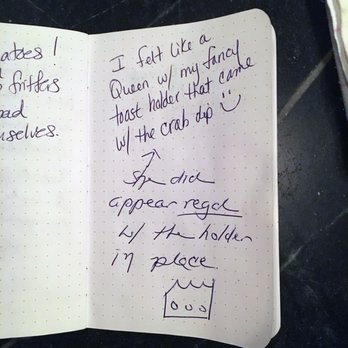 atoes!
fritters
ad
selves.
I felt like a
Queen w/ my fancy
toast holder that came
w/ the crab dip
She did
appear regal
w/ the holder
in place.